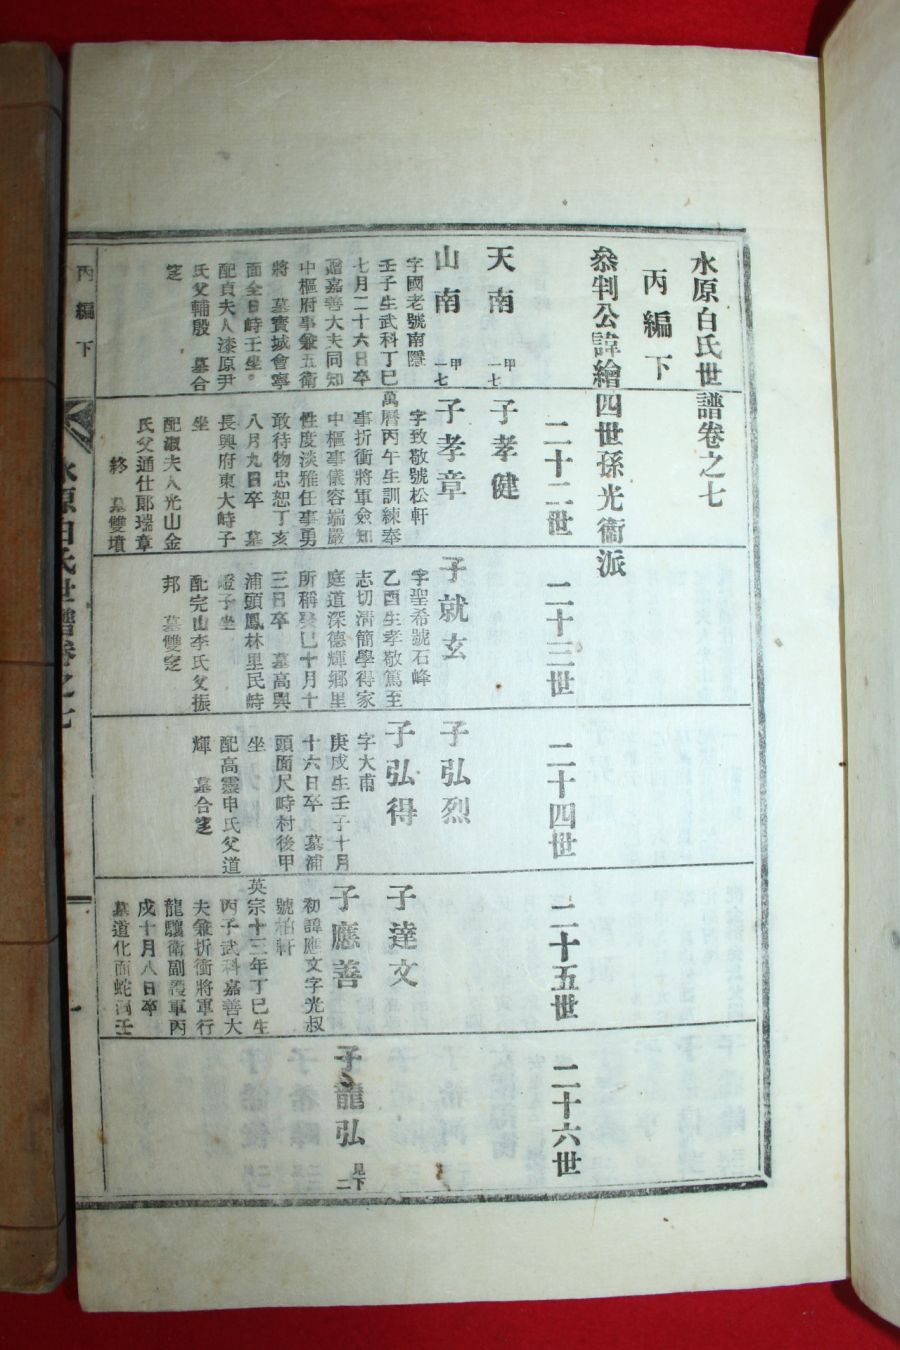 水原白氏世譜卷之七
丙編下
叅判公諱繪四世孫光衞派
天南 甲一七
山南 甲一七
字國老號南隱
壬子生武科丁巳
七月二十六日卒
贈嘉善大夫同知
中樞府事兼五衛
將 墓寶城會寧
面全日峙壬坐。
配貞夫人漆原尹
氏父輔殷 墓合
窆
二十二世
子孝健
子孝章
字致敬號松軒
萬曆丙午生訓練奉
事折衝將軍僉知
中樞事儀容端嚴
性度淡雅任事勇
敢待物忠恕丁亥
八月九日卒 墓
長興府東大峙子
坐
配淑夫人光山金
氏父通仕郞瑞章
終 墓雙墳
二十三世
子就玄
字聖希號石峰
乙酉生孝敬篤至
志切淸簡學得家
庭道深德輝鄕里
所稱癸巳十月十
三日卒 墓高興
浦頭鳳林里民峙
嶝子坐
配完山李氏父振
邦 墓雙窆
二十四世
子弘烈
子弘得
字大甫
庚戌生壬子十月
十六日卒 墓浦
頭面尺峙村後甲
坐
配高靈申氏父道
輝 墓合窆
二十五世
子達文
子應善
初諱應文字光叔
號柏軒
英宗十三年丁巳生
丙子武科嘉善大
夫兼折衝將軍行
龍驤衛副護軍丙
戌十月八日卒
墓道化面蛇洞壬
二十六世
子龍弘 見下二
丙編下
水原白氏世譜卷之七
一